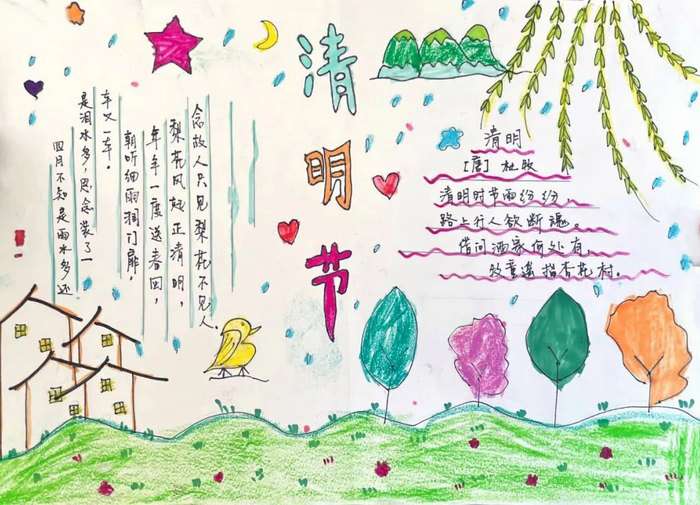 清明节
四月不知是雨水多还
是泪水多,思念装了一
车又一车。
朝听细雨润门扉,
年年一度送春回,
梨花风起正清明,
念故人只见梨花不见人。
清明
[唐] 杜牧
清明时节雨纷纷,
路上行人欲断魂。
借问酒家何处有,
牧童遥指杏花村。